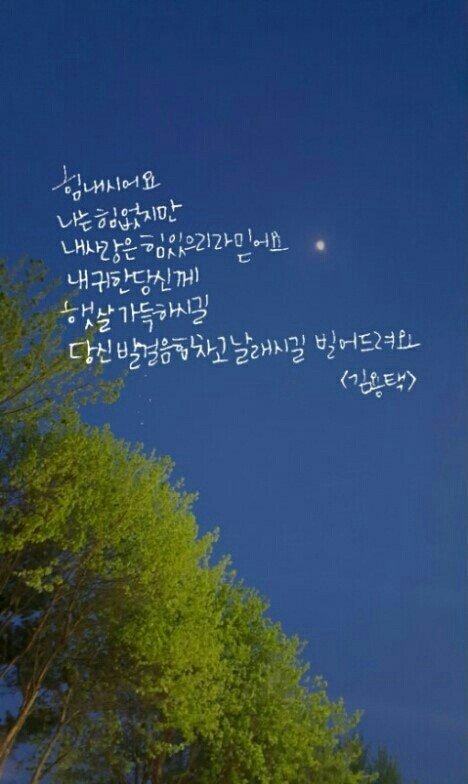 힘내시어요
나는 힘 없지만
내 사랑은 힘 있으리라 믿어요
내 귀한 당신께
햇살 가득하시길
당신 발걸음 힘차고 날래시길 빌어드려요
<김용택>